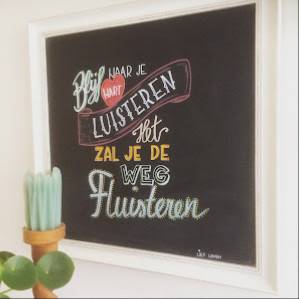 Blijf NAAR JE
HART
LUISTEREN
Het
ZAL JE DE
WEG
Fluisteren